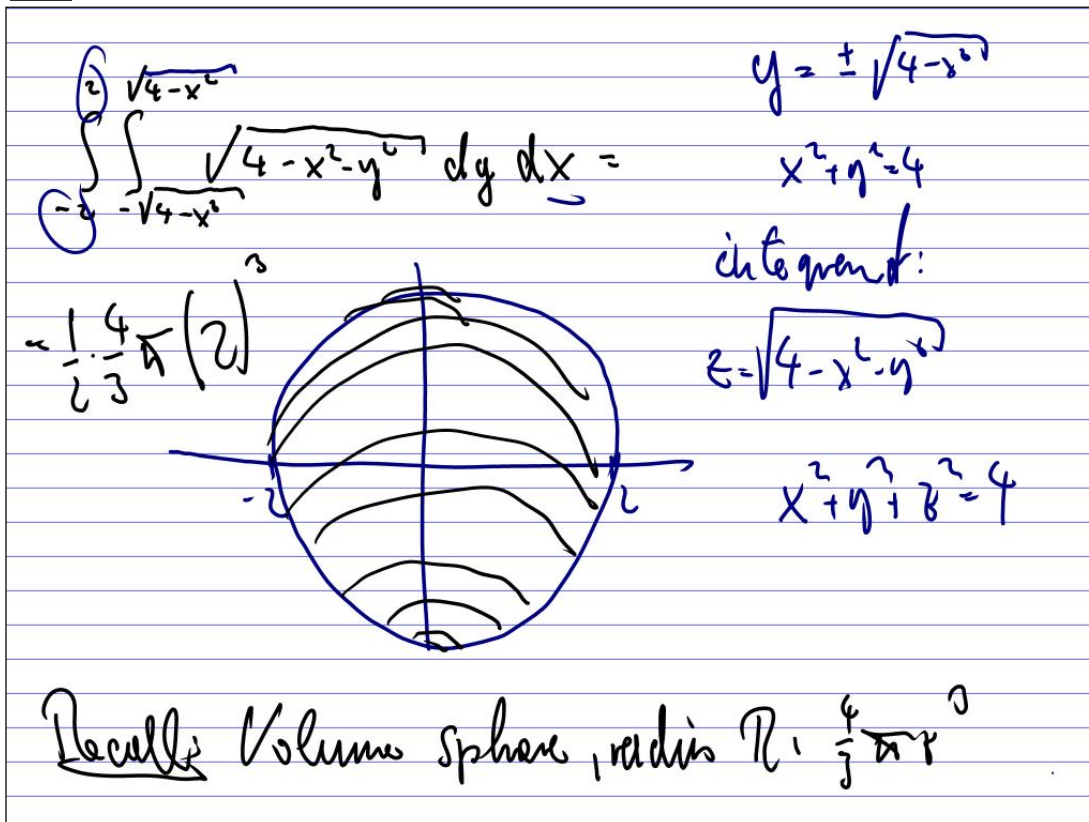 ∫_{-2}^{2} ∫_{-√(4-x²)}^{√(4-x²)} √(4-x²-y²) dy dx =
= 1/2 · 4/3 π (2)³
-2 2
y = ± √(4-x²)
x² + y² = 4
integrand:
z = √(4-x²-y²)
x² + y² + z² = 4
Recall: Volume sphere, radius R: 4/3 π r³